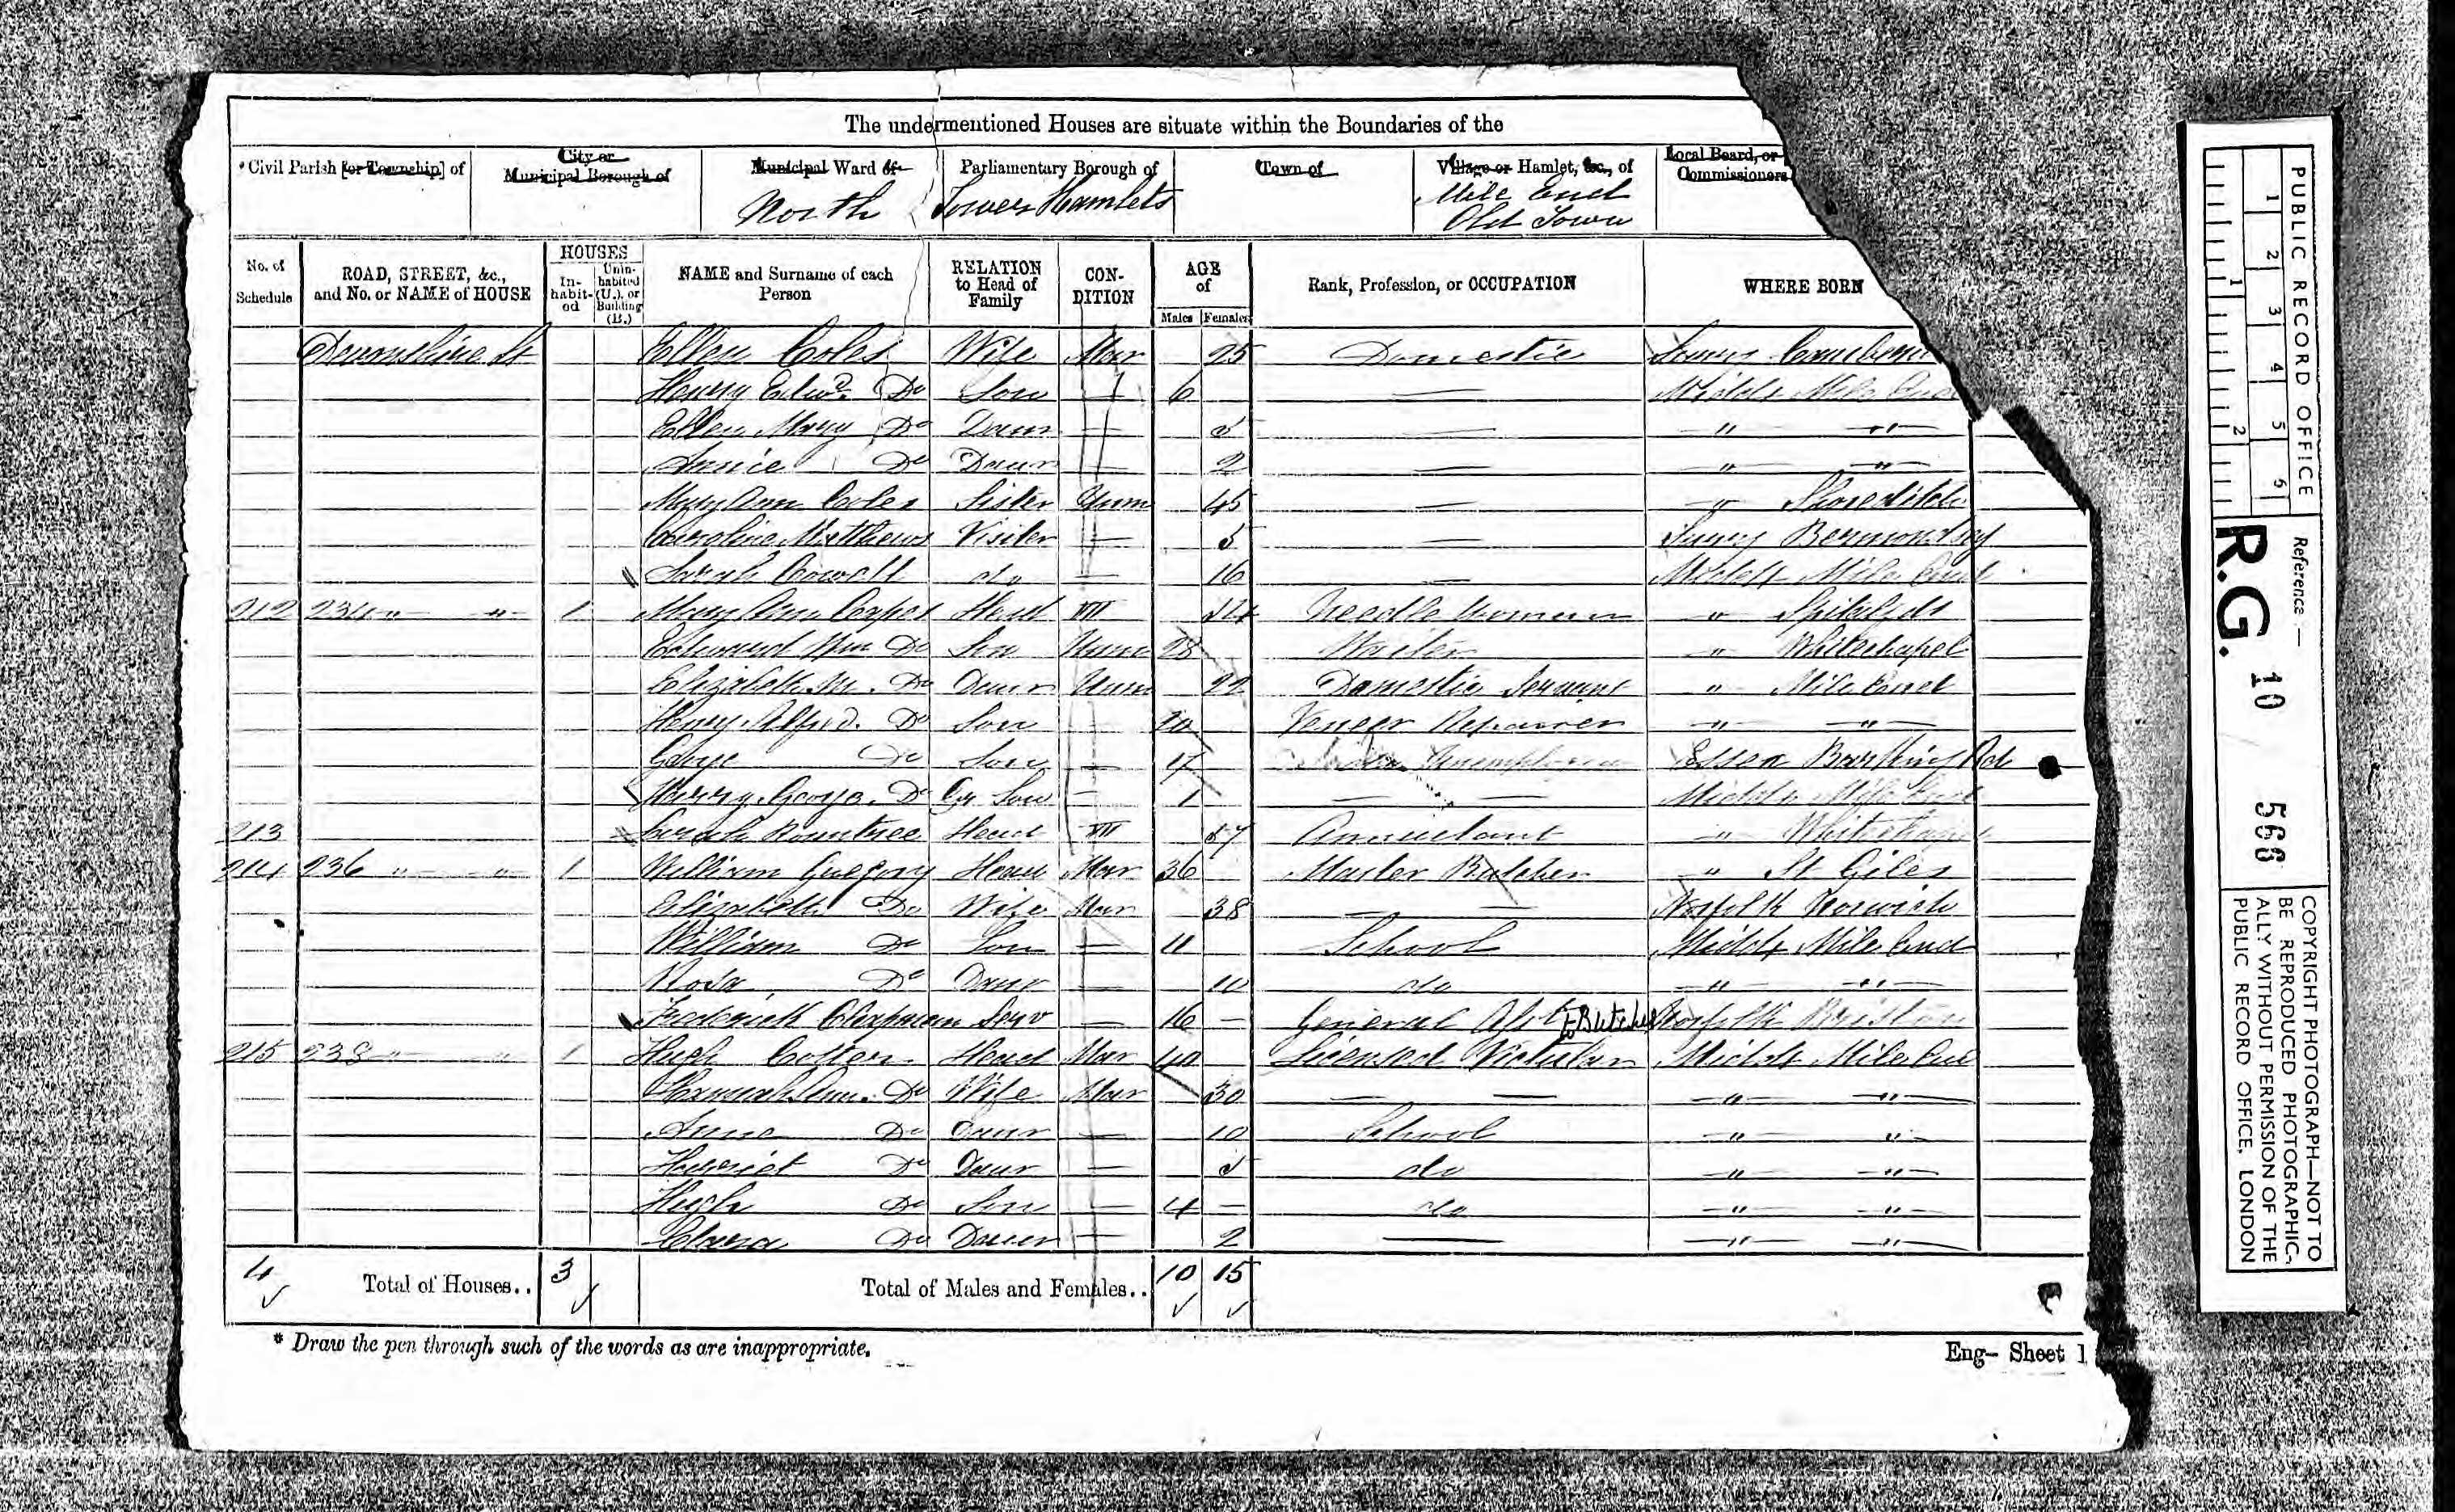 The undermentioned Houses are situate within the Boundaries of the
*Civil Parish [or Township] of City or Municipal Borough of Municipal Ward of Parliamentary Borough of Town of Village or Hamlet, &c., of Local Board, or Commissioners
North Tower Hamlets Mile End Old Town
No. of Schedule ROAD, STREET, &c., and No. or NAME of HOUSE HOUSES In-habit-ed Unin-habited (U.), or Building (B.) NAME and Surname of each Person RELATION to Head of Family CON-DITION AGE of Males Females Rank, Profession, or OCCUPATION WHERE BORN
Devonshire St Ellen Coles Wife Mar 25 Domestic Surrey
Henry Edwd. Do Son 6 — Middx Mile End
Ellen Mary Do Daur — 5 — " "
Annie Do Daur — 2 — " "
Mary Ann Coles Sister Unm 45 — " Shoreditch
Caroline Matthews Visiter — 5 — Surrey Bermondsey
Sarah Cowell do — 16 — Middx Mile End
212 234 " " 1 Mary Ann Head W 54 Needle Woman " Spitalfds
Edward Wm Do Son Unm 23 " Whitechapel
Elizabeth M. Do Daur Unm 22 Domestic Servant " Mile End
Henry Alfrd. Do Son — 20 Veneer Repairer " "
George Do Son — 17 Essex Barking Rd
Harry George. Do Gr Son — 1 — — Middx Mile End
213 Sarah Rountree Head W 57 Annuitant " Whitechapel
214 236 " " 1 William Gregory Head Mar 36 Master Butcher " St Giles
Elizabeth Do Wife Mar 38 — — Norfolk Norwich
William Do Son — 11 School Middx Mile End
Rosa Do Daur — 10 do " "
Frederick Chapman Serv — 16 — General Asst to Butcher Norfolk
215 238 " " 1 Hugh Head Mar 40 Licensed Victular Middx Mile End
Hannah Ann. Do Wife Mar 30 — — " "
Anne Do Daur — 10 School " "
Harriet Do Daur — 5 do " "
Hugh Do Son — 4 — do " "
Clara Do Daur — 2 — " "
4 Total of Houses.. 3 Total of Males and Females.. 10 15
* Draw the pen through such of the words as are inappropriate.
Eng— Sheet 1
PUBLIC RECORD OFFICE
1 2 3 4 5 6
1 2
Reference:—
R.G. 10 566
COPYRIGHT PHOTOGRAPH—NOT TO
BE REPRODUCED PHOTOGRAPHIC-
ALLY WITHOUT PERMISSION OF THE
PUBLIC RECORD OFFICE, LONDON